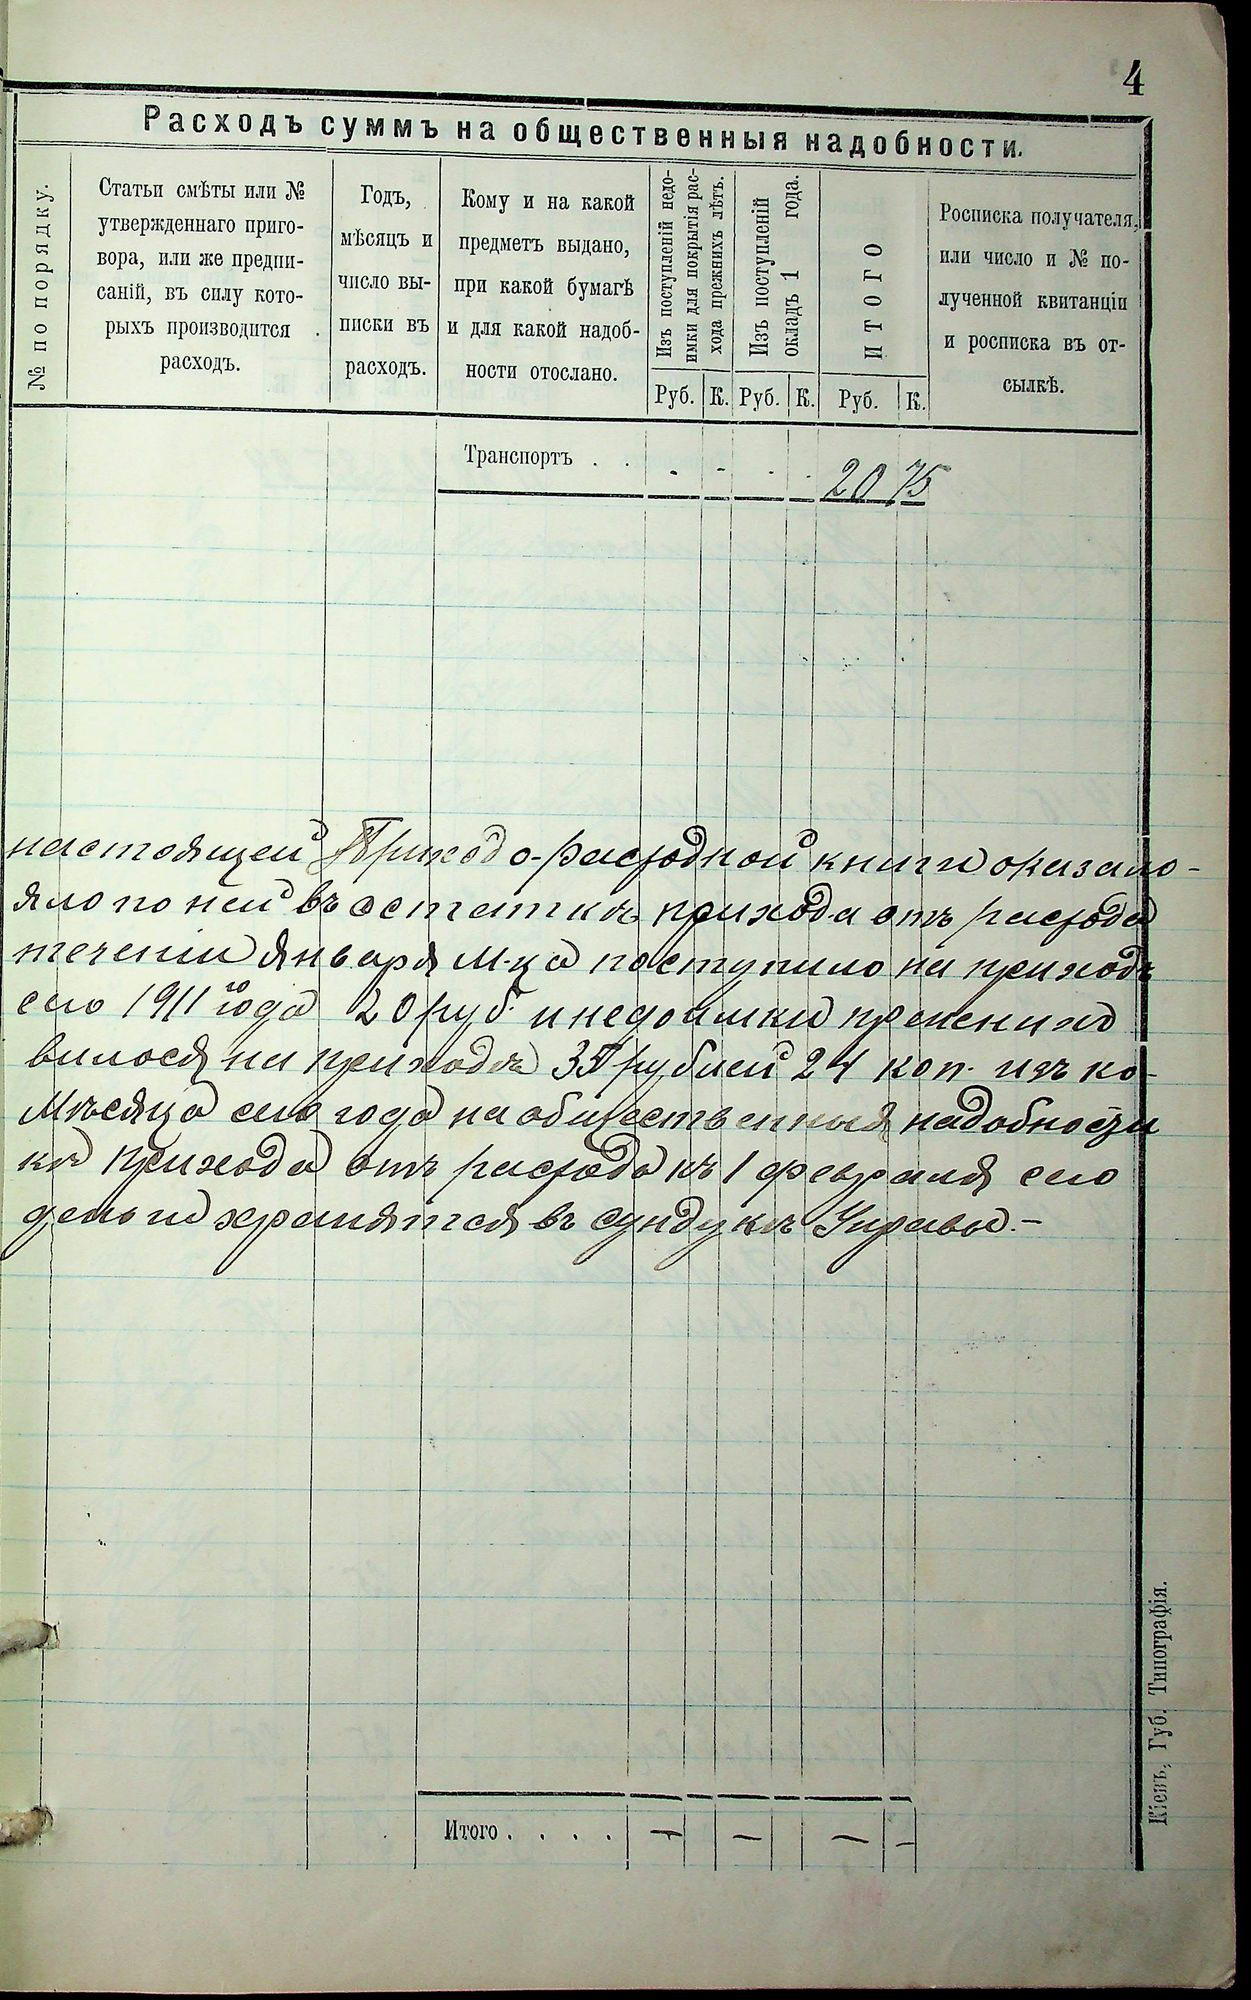 4
Расходъ суммъ на общественныя надобности.
№ по порядку.
Статьи смѣты или №
утвержденнаго приго-
вора, или же предпи-
саній, въ силу кото-
рыхъ производится
расходъ.
Годъ,
мѣсяцъ и
число вы-
писки въ
расходъ.
Кому и на какой
предметъ выдано,
при какой бумагѣ
и для какой надоб-
ности отослано.
Изъ поступленій недо-
имки для покрытія рас-
хода прежнихъ лѣтъ.
Изъ поступленій
окладъ 1 года.
ИТОГО
Росписка получателя,
или число и № по-
лученной квитанціи
и росписка въ от-
сылкѣ.
Руб. К. Руб. К. Руб. К.
Транспортъ . . - - - . 20 75
настоящей Приходо-расходной книги оказало-
яло по ней въ остаткѣ прихода отъ расхода
теченіи января м-ца поступило на приходъ
сего 1911 года 20 руб. и недоимки
вилося на приходѣ рублей 24 коп. изъ ко-
мѣсяца сего года на общественныя надобности
кѣ прихода отъ расхода къ 1 февраля сего
деньги хранятся въ сундукѣ Управы.-
Итого . . . . — — — —
Кіевъ, Губ. Типографія.